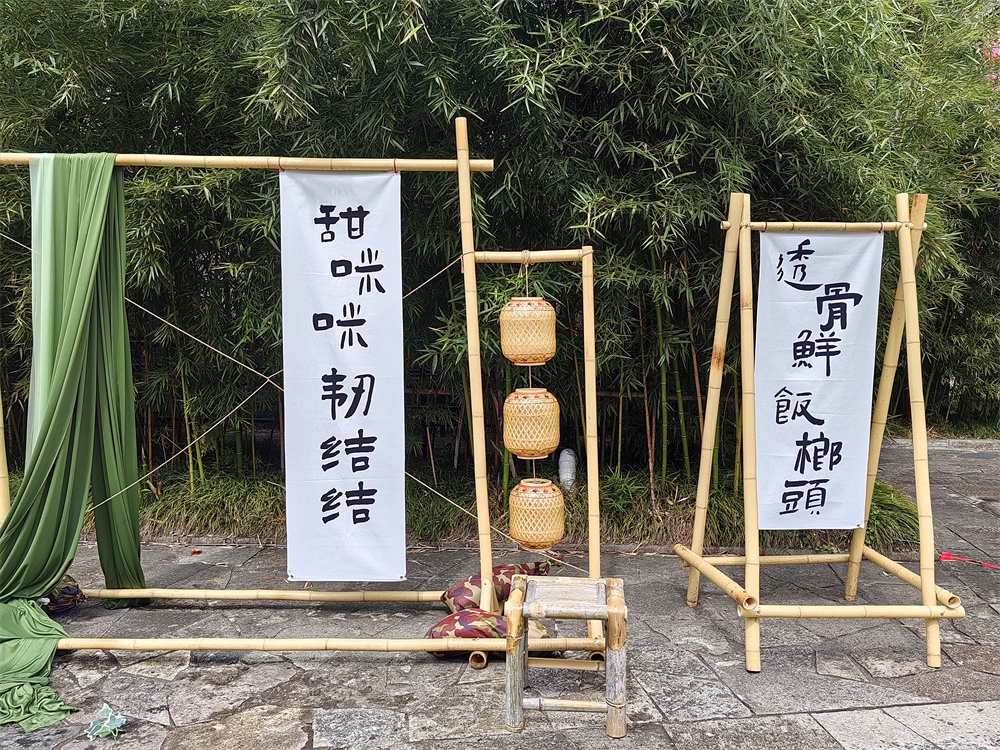 甜咪咪韧结结
透骨鮮飯榔頭